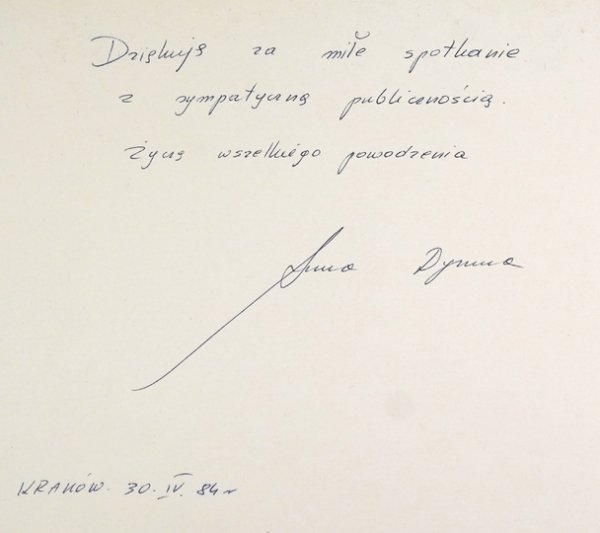 Dziękuję za miłe spotkanie
z sympatyczną publicznością.
Życzę wszelkiego powodzenia
Anna Dymna
KRAKÓW. 30. IV. 84 r